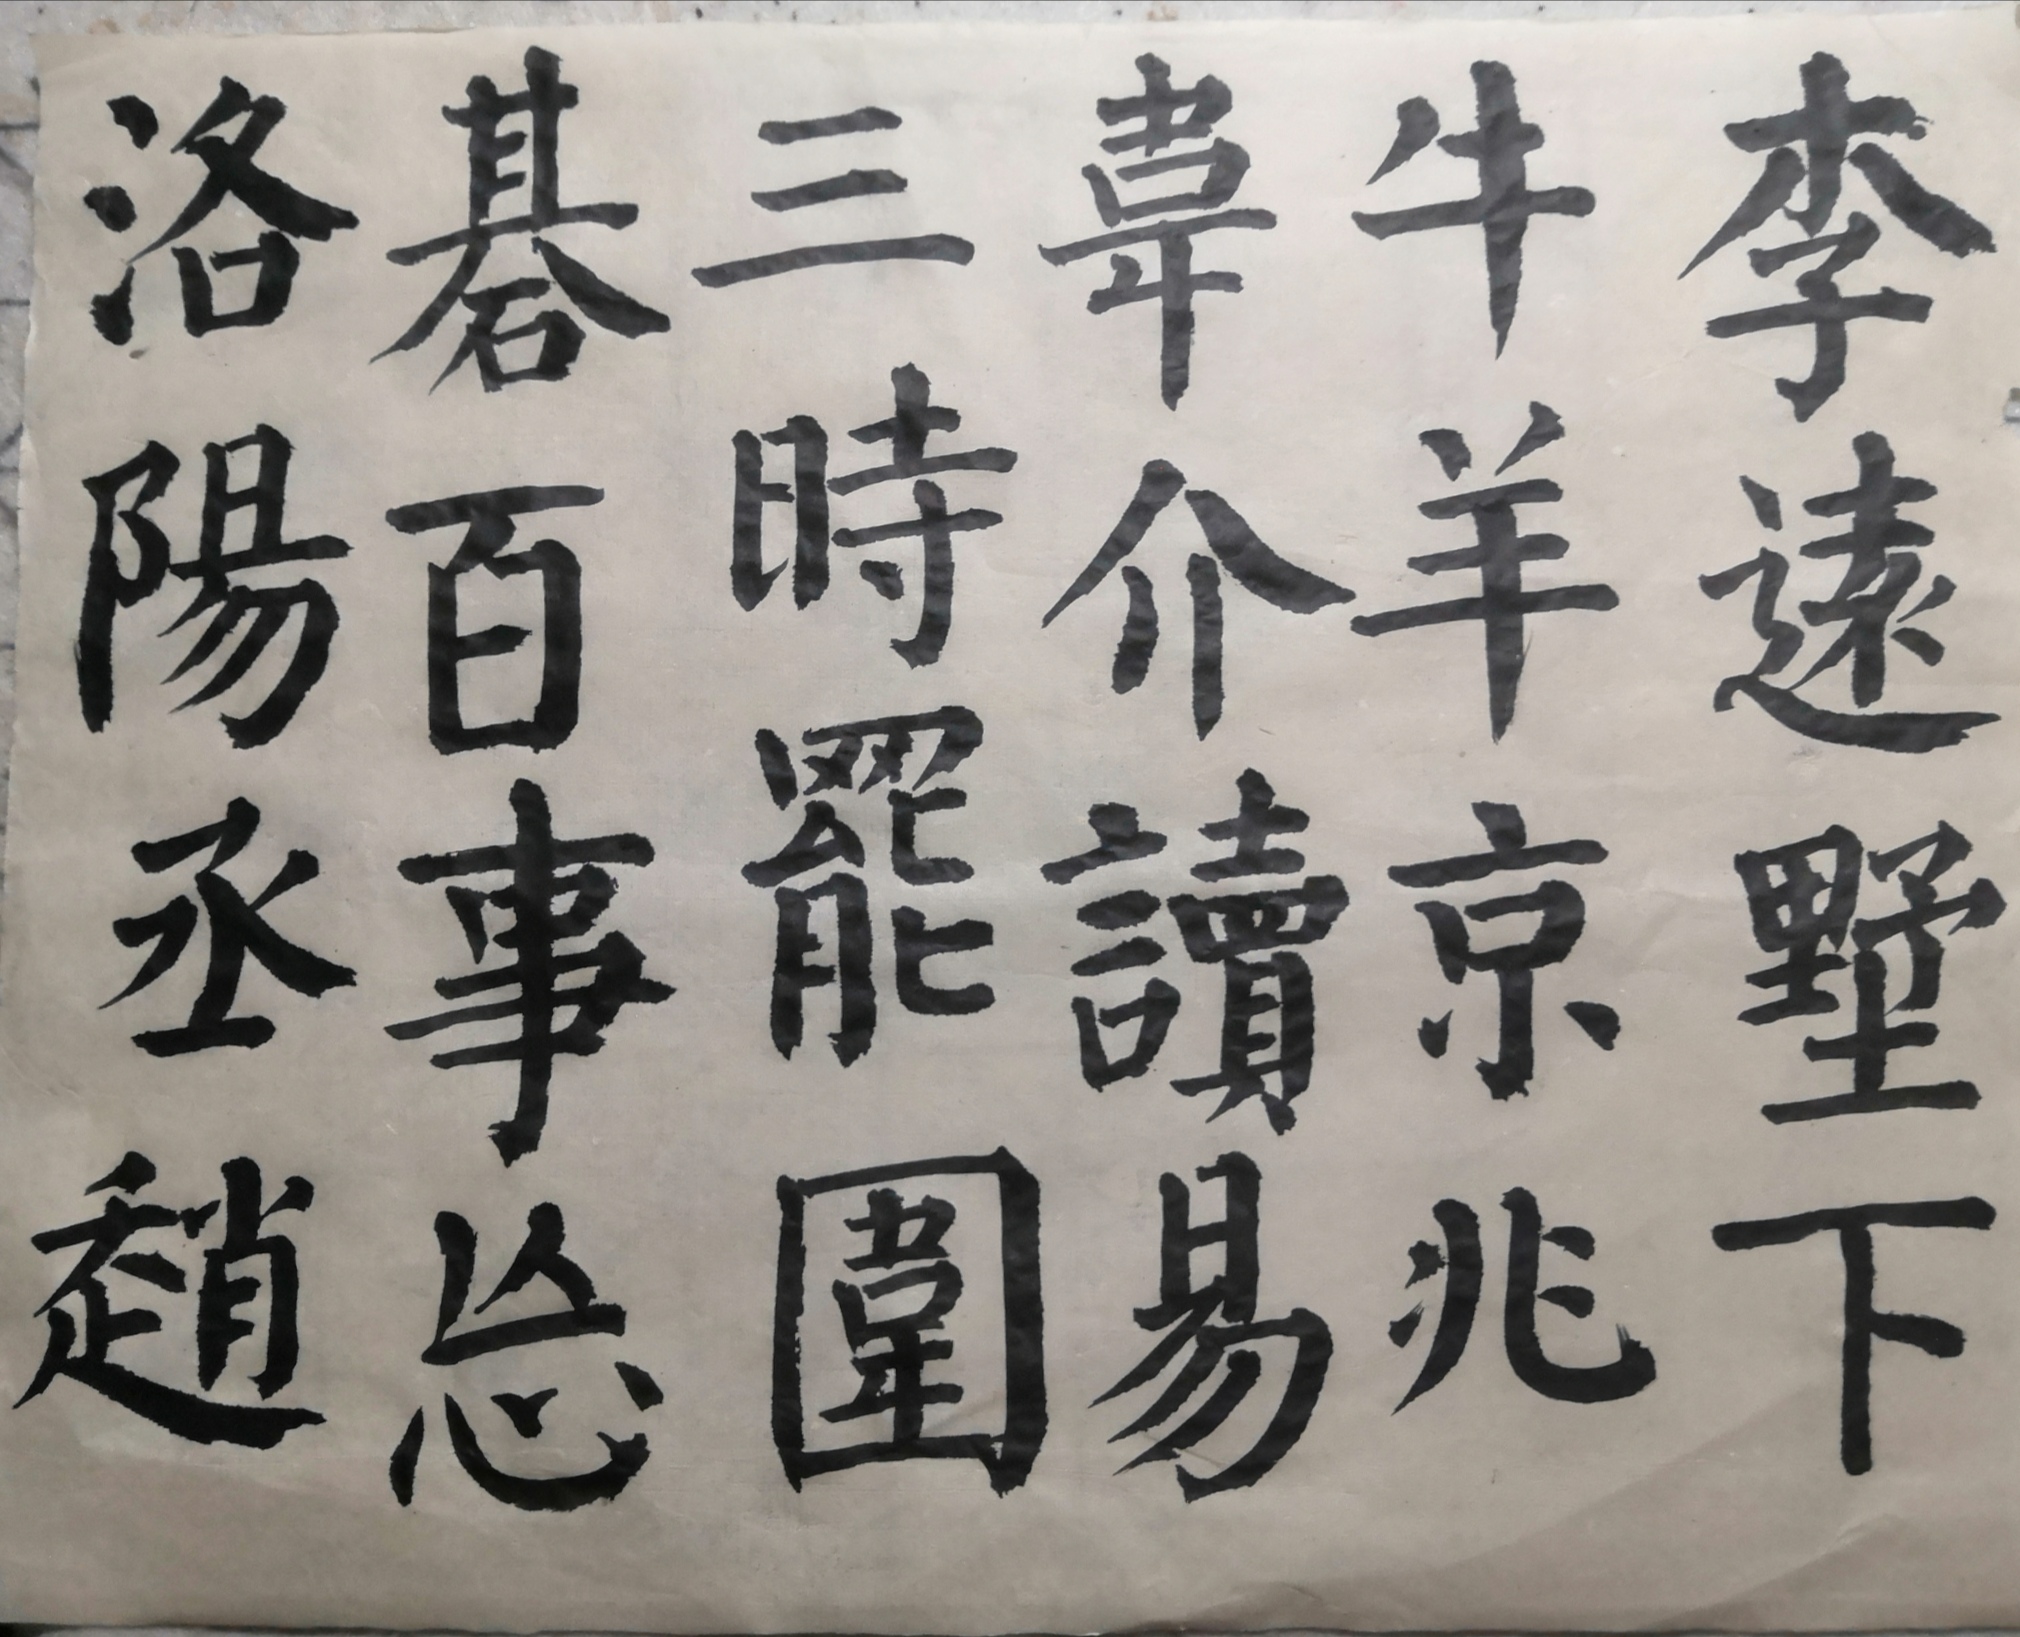 李遠墅下
牛羊京兆
韋介讀易
三時罷圍
碁百事忘
洛陽丞趙